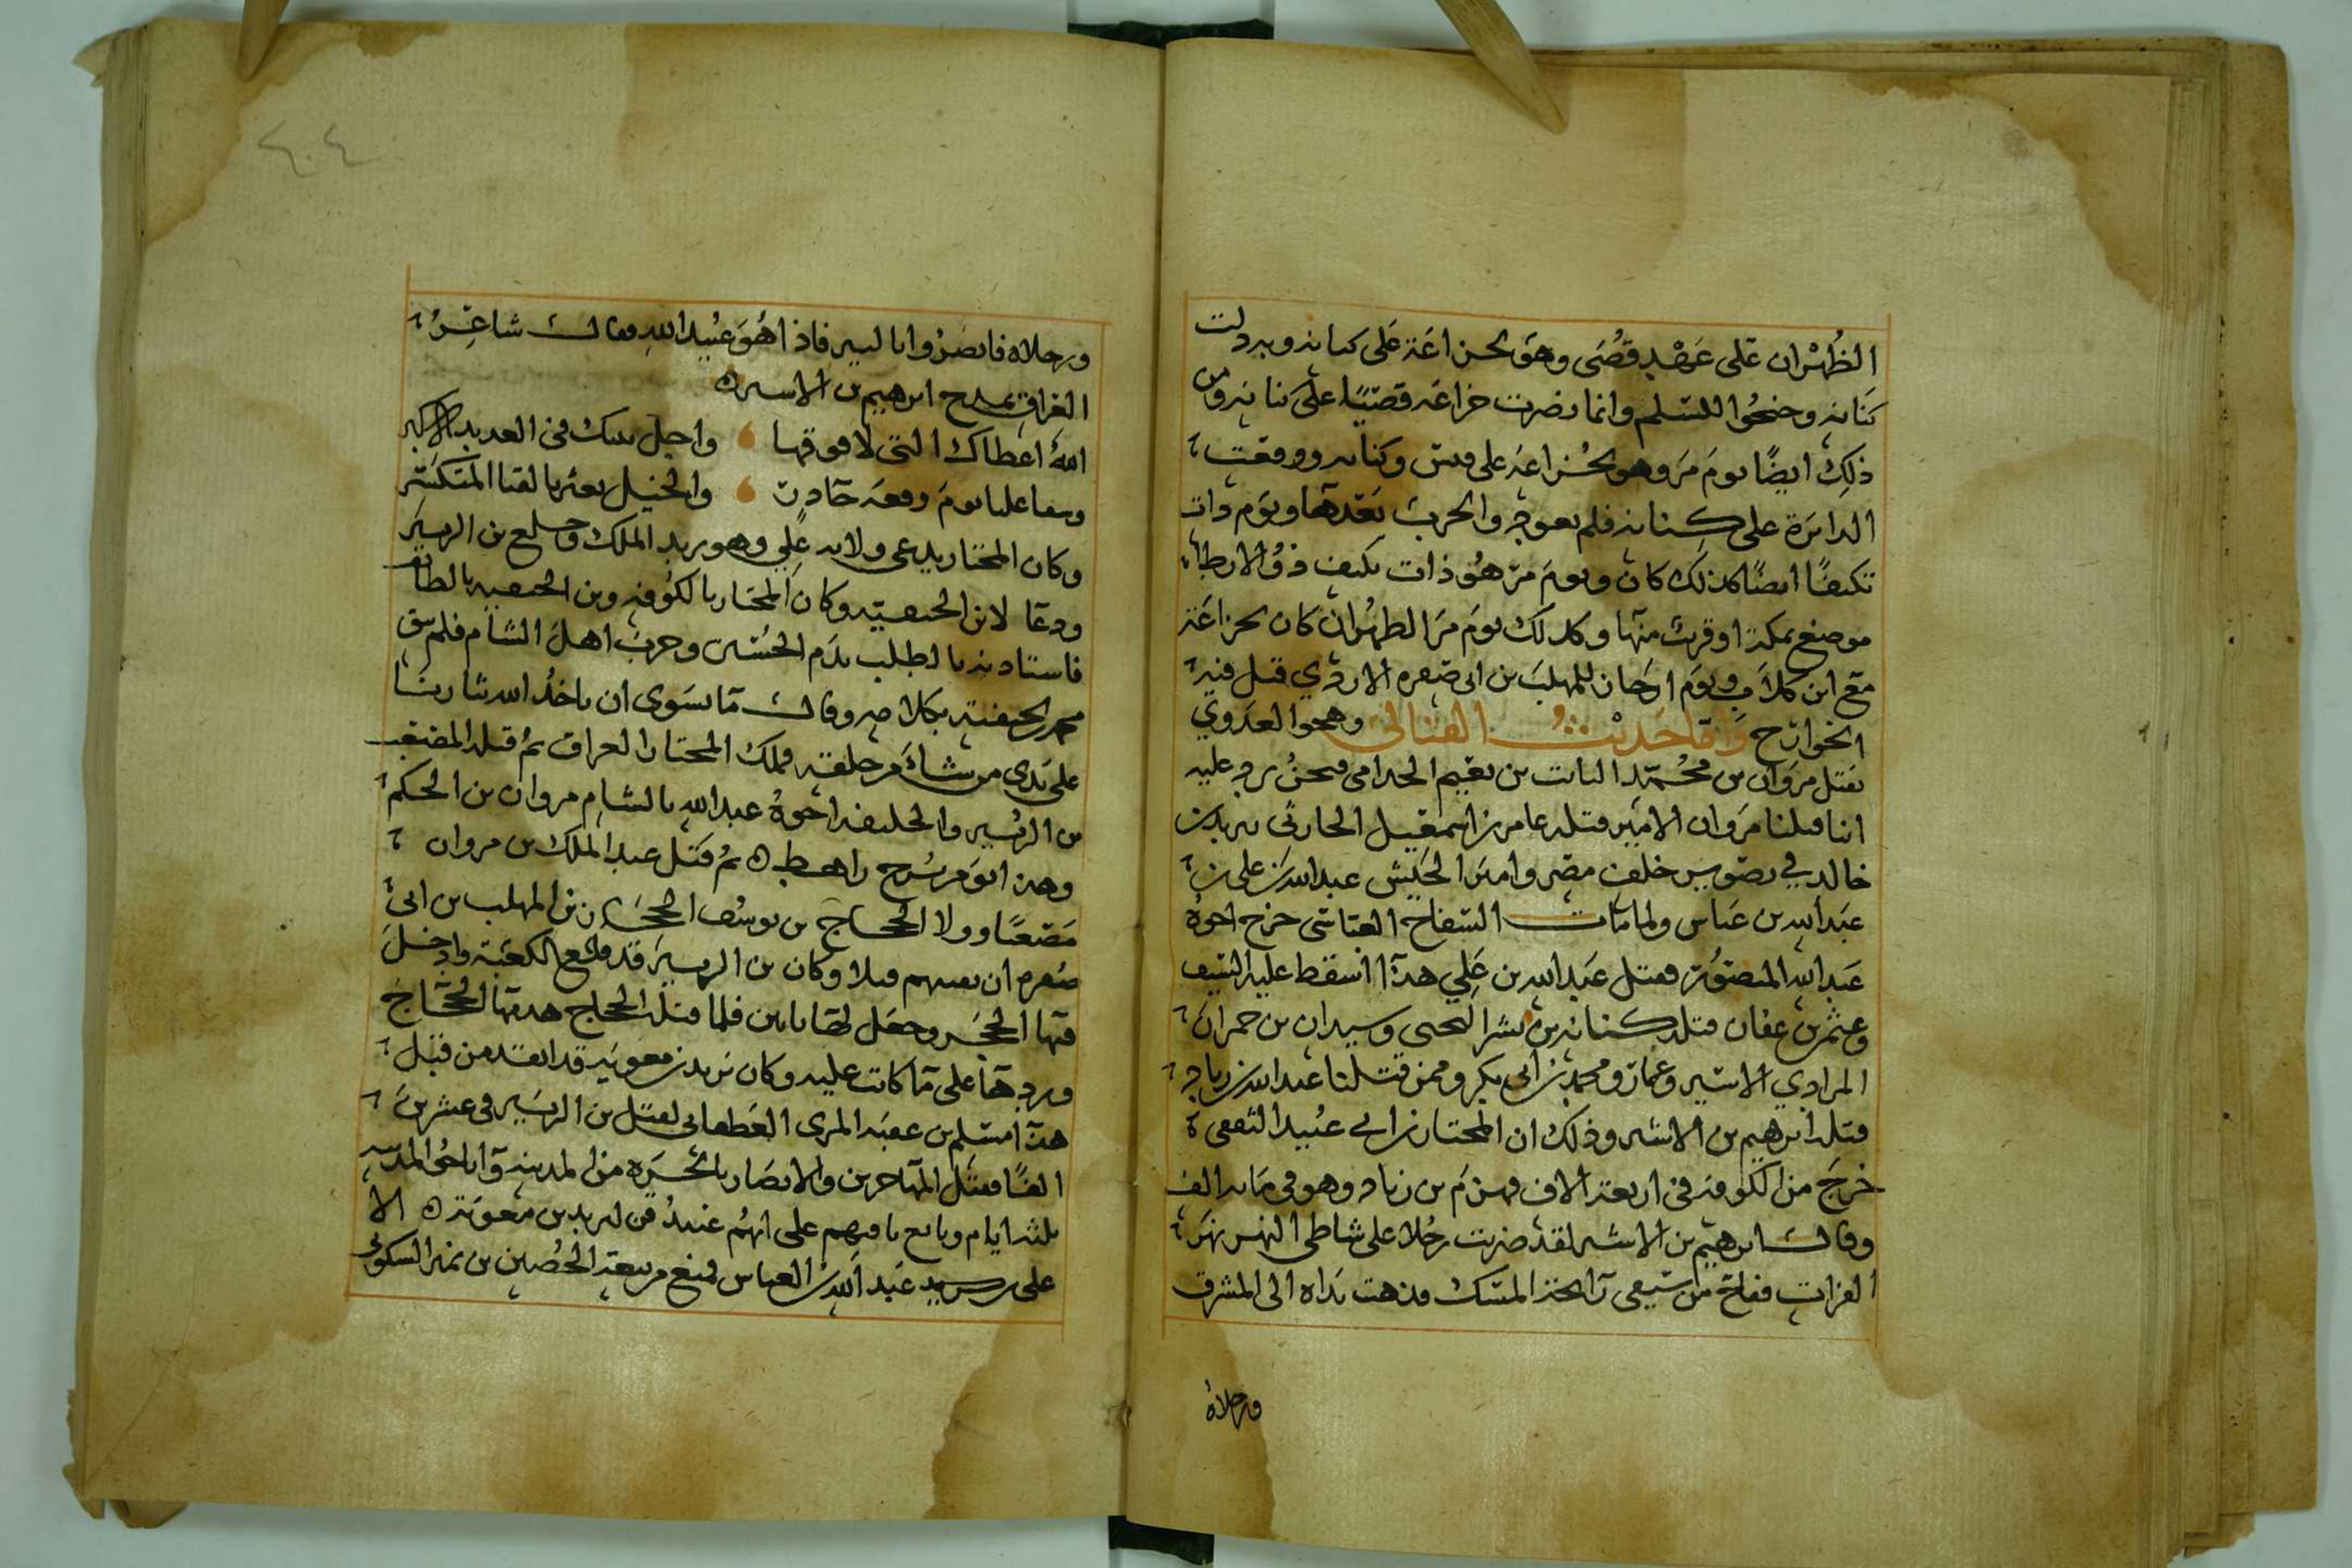 الظهران على عهد قصى وهو لخزاعة على كنانه وبدولت
كنانه وجنحوا للسلم وانما نصرت خزاعه قصيًا على كنانه ومن
ذلك ايضًا يوم مر وهو لخزاعه على قيس وكنانه ووقعت
الدائرة على كنانه فلم يعوج والحرب بعدها ويوم ذات
نكيف ايضًا كذلك كان ويوم مر هو ذات نكيف ذو الارطا
موضع بمكة او قريب منها وكذلك يوم مر الظهران كان لخزاعة
مع ابن كلاب ويوم ارجان للمهلب بن ابى صفره الازدي قتل فيه
الخوارج وهجوا العدوي
بقتل مروان بن محمد النابت بن نعيم الجذامى فنحن نرد عليه
اننا قتلنا مروان الامير قتله عامر بن اسمعيل الحارثى يزيد بن
خالد في بوصير خلف مصر وامير الجيش عبد الله بن على بن
عبد الله بن عباس ولما مات السفاح العباسى خرج اخوه
عبد الله المنصور فقتل عبد الله بن علي هذا اسقط عليه السقيف
وعثمن بن عفان قتله كنانه بن بشر التجيبى وسيدان بن حمران
المرادي الاشتر وعمار ومحمد بن ابى بكر وممن قتلنا عبد الله بن زياد
قتله ابرهيم بن الاشتر وذلك ان المختار بن ابي عبيد الثقفى
خرج من الكوفه فى اربعة الاف فهزم بن زياد وهو فى مايه الف
وقال ابرهيم بن الاشتر لقد ضربت رجلا على شاطى النهر نهر
الفرات ففاح من سيفى رائحة المسك فذهبت يداه الى المشرق
ورجلاه
ورجلاه فابصروا بالبير فاذا هو عبيد الله وقال شاعر
العراق يمدح ابرهيم بن الاشتر
الله اعطاك التى لا فوقها واجل بيتك فى العديد الاكبر
وسقا علينا يوم وقعه حادت والخيل يعثر بالقنا المتكسر
وكان المختار يدعى ولايه علي وهو يريد الملك وخلع بن الزبير
ودعا لابن الحنفيه وكان المختار بالكوفه وبن الحنفيه بالطائف
فاستاذنه بالطلب بدم الحسين وحرب اهل الشام فلم يبق
محمد الحنفيه بكلامه وقال ما يسوى ان ياخذ الله ثارنا
على يدى من يشاء من خلقه فملك المختار العراق ثم قتله المصعب
بن الزبير والخليفه اخوه عبد الله بالشام مروان بن الحكم
وهذا يوم مرج راهط ثم قتل عبد الملك بن مروان
مصعبًا وولا الحجاج بن يوسف الحجاز بن المهلب بن ابى
صفره ان بعثهم قبلا وكان بن الزبير قد وسع الكعبة وادخل
فيها الحجر وجعل لها بابين فلما قتله الحجاج هدمها الحجاج
وردها على ما كانت عليه وكان يزيد بن معويه قد انفذ من قبل
هذا مسلم بن عقبه المرى الغطفانى لقتل بن الزبير فى عشرين
الفًا فقتل المهاجرين والانصار بالحره من المدينه واباح المدينه
ثلثه ايام وبايع باقيهم على انهم عبيد قن ليزيد بن معويه الا
على بن عبد الله بن العباس فمنع من بيعته الحصين بن نمير السكونى